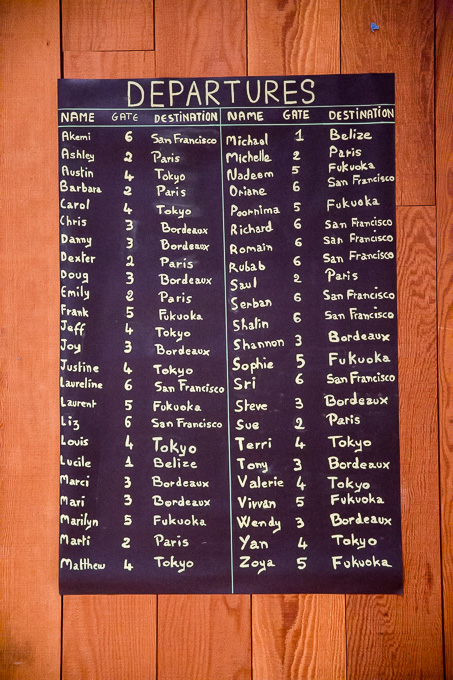 DEPARTURES
NAME GATE DESTINATION NAME GATE DESTINATION
Akemi 6 San Francisco
Ashley 2 Paris
Austin 4 Tokyo
Barbara 2 Paris
Carol 4 Tokyo
Chris 3 Bordeaux
Danny 3 Bordeaux
Dexter 2 Paris
Doug 3 Bordeaux
Emily 2 Paris
Frank 5 Fukuoka
Jeff 4 Tokyo
Joy 3 Bordeaux
Justine 4 Tokyo
Laureline 6 San Francisco
Laurent 5 Fukuoka
Liz 6 San Francisco
Louis 4 Tokyo
Lucile 1 Belize
Marci 3 Bordeaux
Mari 3 Bordeaux
Marilyn 5 Fukuoka
Marti 2 Paris
Matthew 4 Tokyo
Michael 1 Belize
Michelle 2 Paris
Nadeem 5 Fukuoka
Oriane 6 San Francisco
Poornima 5 Fukuoka
Richard 6 San Francisco
Romain 6 San Francisco
Rubab 6 San Francisco
Saul 2 Paris
Serban 6 San Francisco
Shalin 6 San Francisco
Shannon 3 Bordeaux
Sophie 5 Fukuoka
Sri 6 San Francisco
Steve 3 Bordeaux
Sue 2 Paris
Terri 4 Tokyo
Tony 3 Bordeaux
Valerie 4 Tokyo
Vivvan 5 Fukuoka
Wendy 3 Bordeaux
Yan 4 Tokyo
Zoya 5 Fukuoka